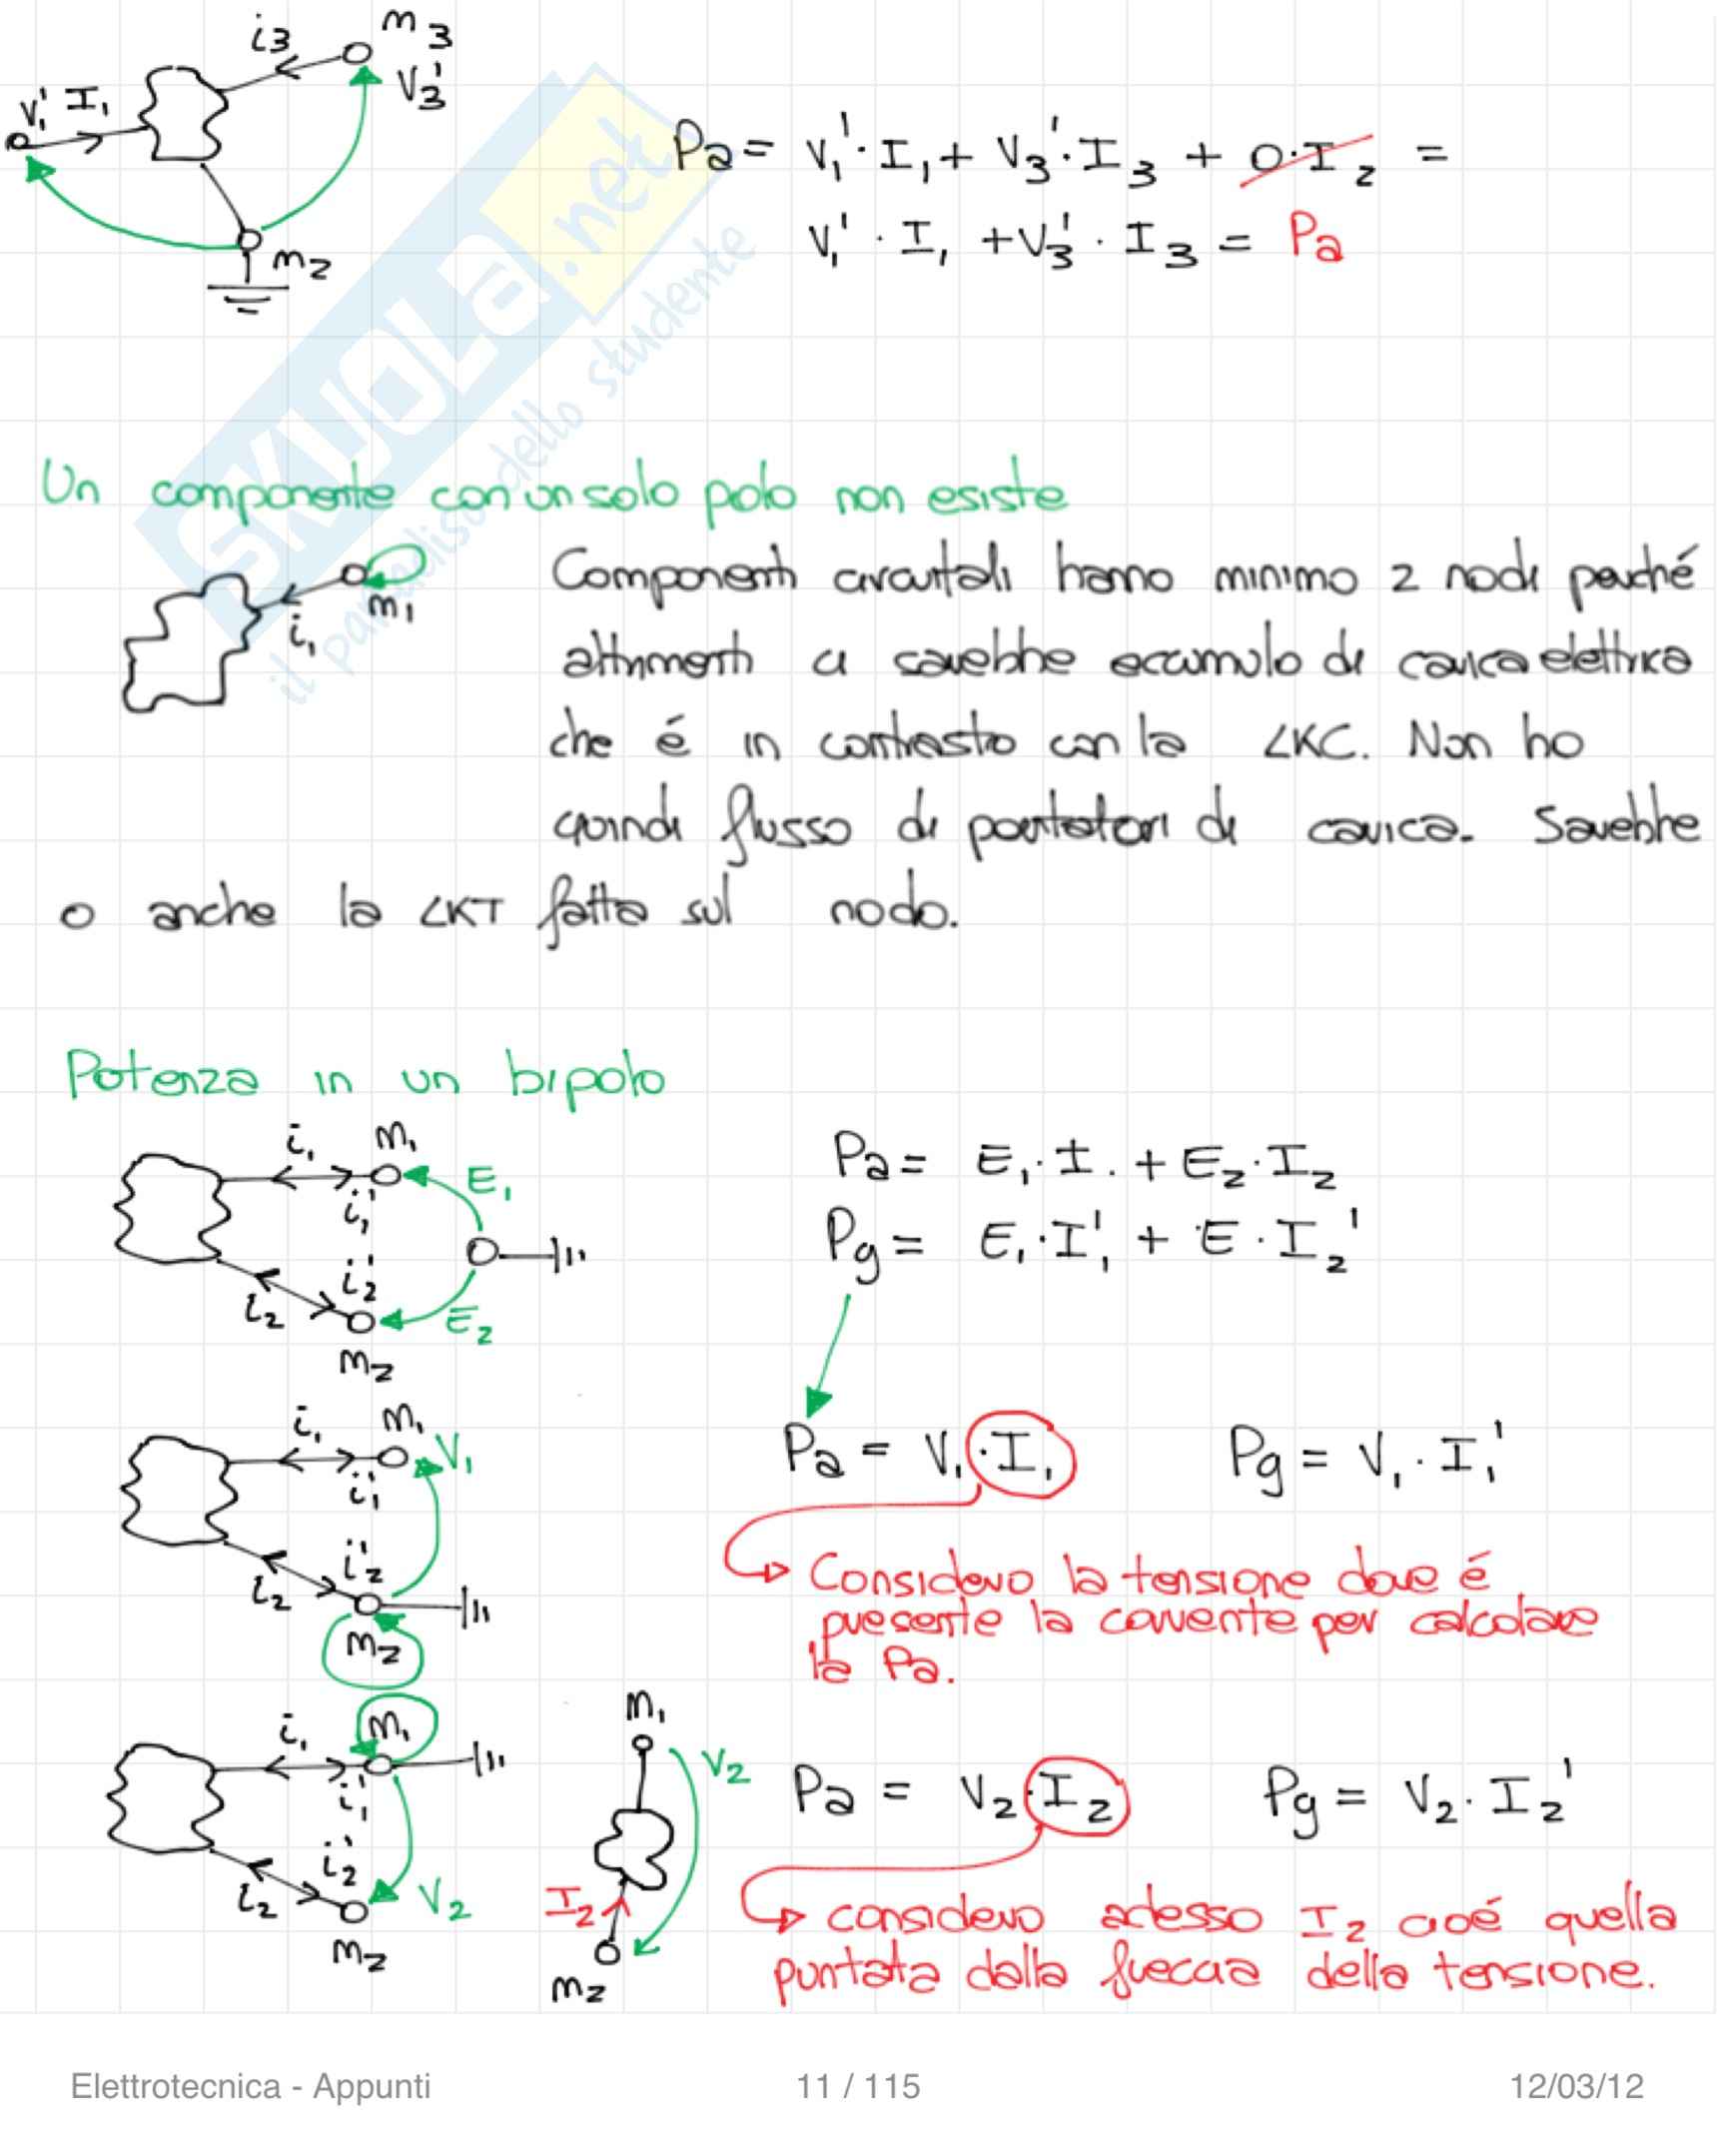 i3 m3
V3'
V1' I1
m2
Pa = V1' · I1 + V3' · I3 + 0·I2 =
V1' · I1 + V3' · I3 = Pa
SKUOLa.net
il paradiso dello studente
Un componente con un solo polo non esiste
m1
i1
Componenti circuitali hanno minimo 2 nodi perché
altrimenti ci sarebbe accumulo di carica elettrica
che é in contrasto con la LKC. Non ho
quindi flusso di portatori di carica. Sarebbe
o anche la LKT fatta sul nodo.
Potenza in un bipolo
i1 m1
i1' E1
i2'
i2 E2
m2
Pa = E1 · I1 + E2 · I2
Pg = E1 · I1' + E · I2'
i1 m1
i1' V1
i2'
i2
m2
Pa = V1 · I1 Pg = V1 · I1'
Considero la tensione dove é
presente la corrente per calcolare
la Pa.
i1 m1
i1'
i2'
i2 V2
m2
m1
V2
I2
m2
Pa = V2 · I2 Pg = V2 · I2'
considero adesso I2 cioé quella
puntata dalla freccia della tensione.
Elettrotecnica - Appunti 11 / 115 12/03/12